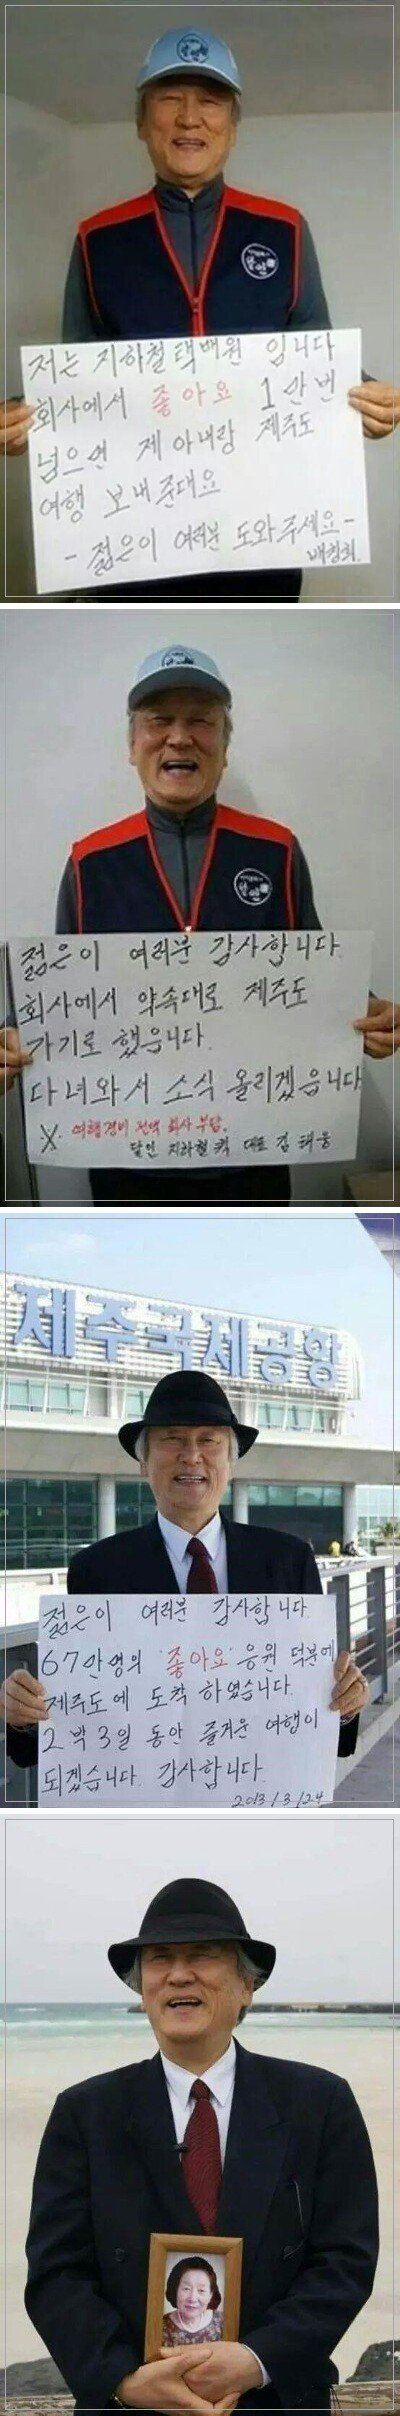 저는 지하철택배원 입니다
회사에서 좋아요 1만번
넘으면 제 아내랑 제주도
여행 보내준대요
- 젊은이 여러분 도와주세요 -
젊은이 여러분 감사합니다.
회사에서 약속대로 제주도
가기로 했읍니다.
다녀와서 소식 올리겠읍니다
※ 여행경비 전액 회사 부담.
달인 지하철 퀵 대표 김태웅
제주국제공항
젊은이 여러분 감사합니다.
67만명의 '좋아요' 응원 덕분에
제주도에 도착 하였습니다.
2박 3일 동안 즐거운 여행이
되겠습니다. 감사합니다.
2013/3/24